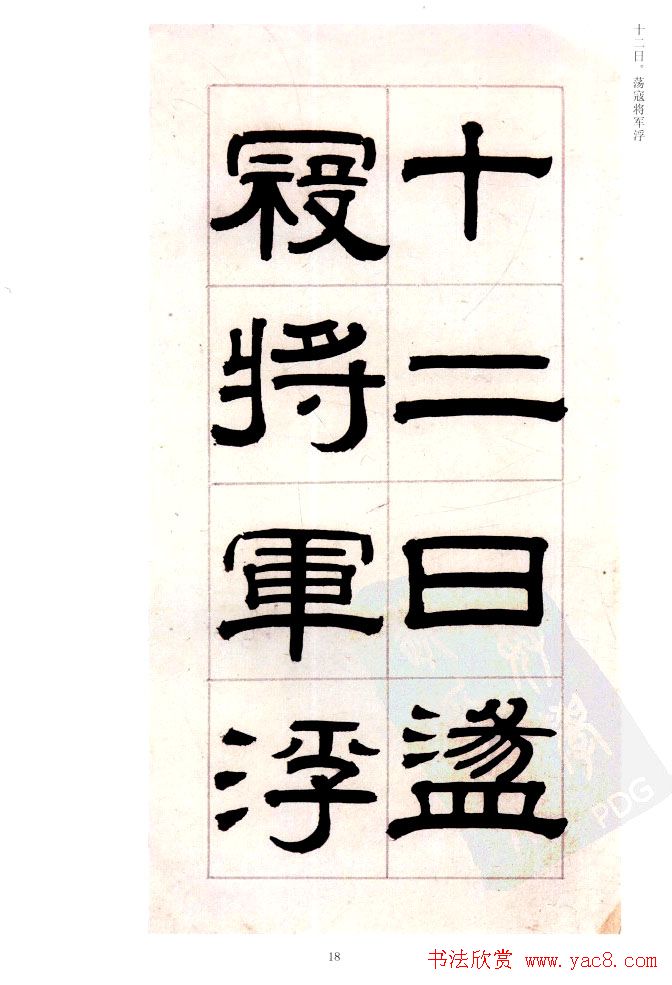 十二日。荡寇将军浮
十二日盪
寇將軍浮
18
书法欣赏 www.yac8.com
PDG